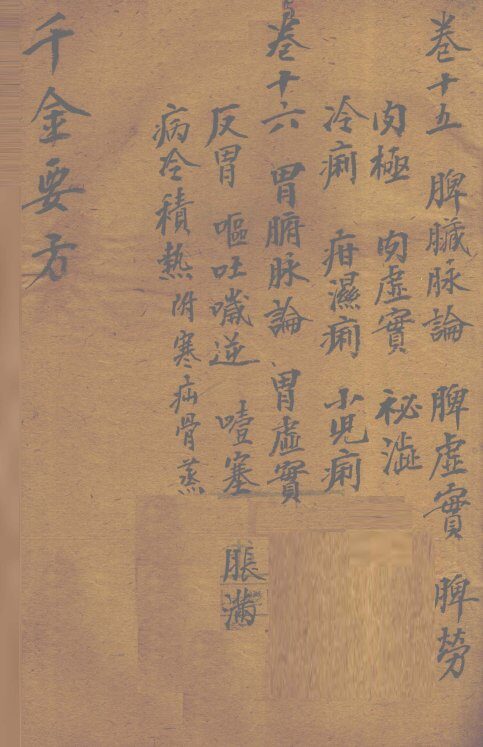 卷十五 脾臟脉論 脾虛實 脾勞
肉極 肉虛實 秘澁
冷痢 疳濕痢 小兒痢
卷十六 胃腑脉論 胃虛實
反胃 嘔吐噦逆 噎塞 脹滿
病冷積熱 附寒疝骨蒸
千金要方